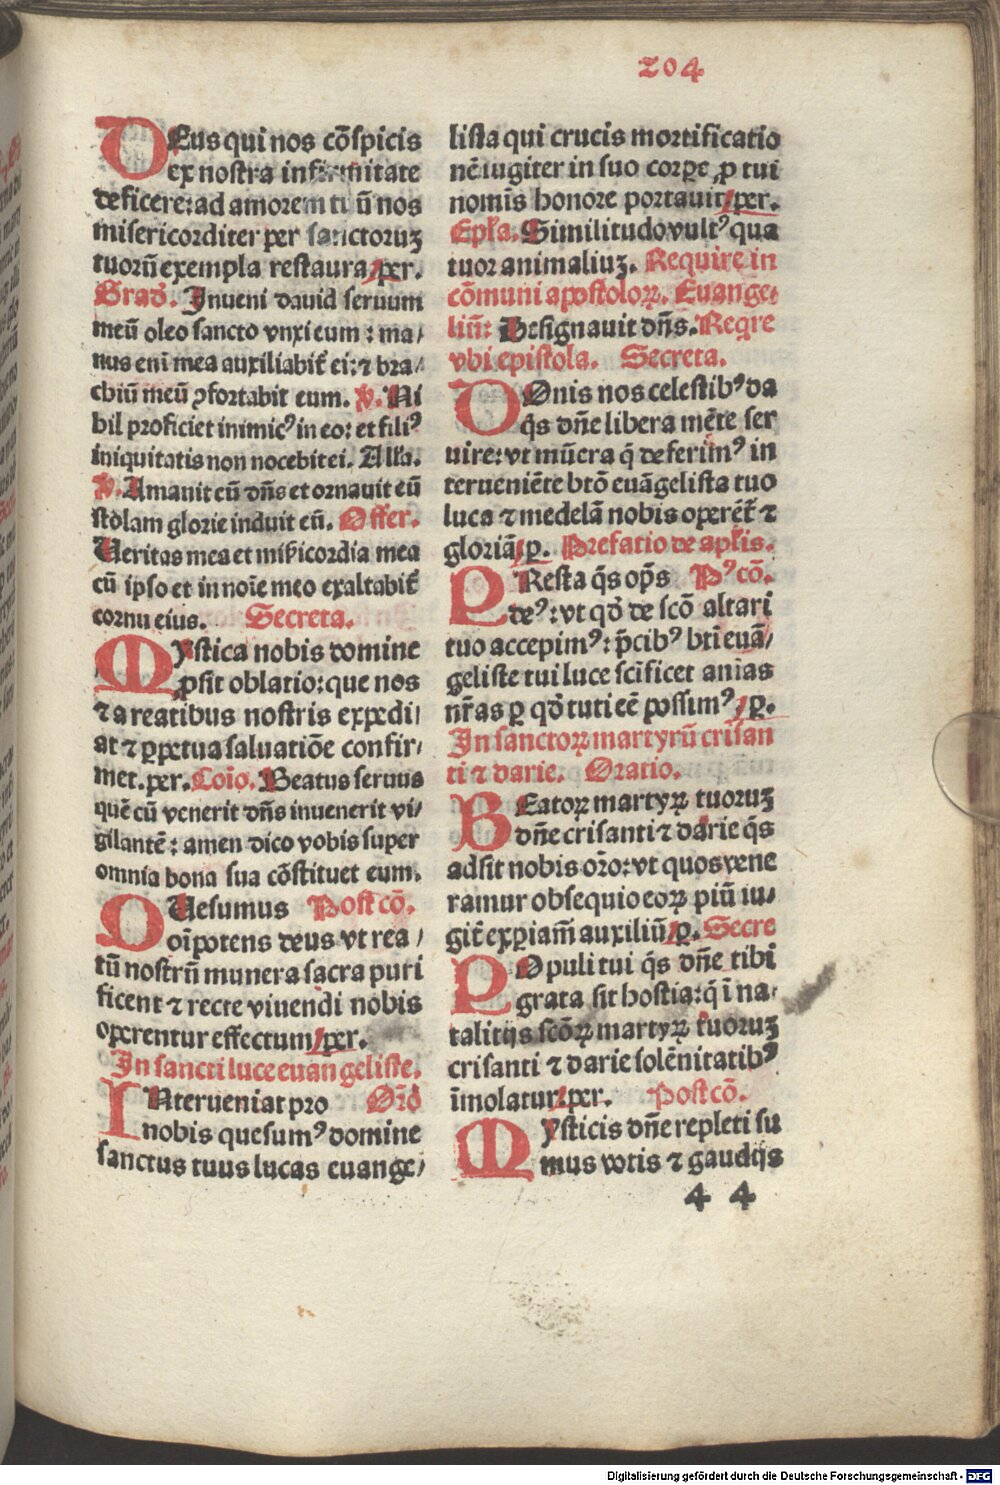 204
DEus qui nos cōspicis
ex nostra infirmitate
deficere: ad amorem tuū nos
misericorditer per sanctoruꝫ
tuorū exempla restaura / per.
Grad'. Inueni dauid seruum
meū oleo sancto vnxi eum : ma/
nus eni mea auxiliabit̄ ei: ⁊ bra/
chiū meū ꝯfortabit eum. ℣. Ni
hil proficiet inimicꝰ in eo: et filiꝰ
iniquitatis non nocebit ei. Alľa.
℣. Amauit eū dn̄s et ornauit eū
stolam glorie induit eū. Offer.
Ueritas mea et mīcordia mea
cū ipso et in noīe meo exaltabit̄
cornu eius. Secreta.
MYstica nobis domine
ꝓsit oblatio: que nos
⁊ a reatibus nostris expedi/
at ⁊ ꝑpetua saluatiōe confir/
met. per. Coīo. Beatus seruus
quē cū venerit dn̄s inuenerit vi/
gilantē : amen dico vobis super
omnia bona sua cōstituet eum.
QUesumus Post cō.
oīpotens deus vt rea /
tū nostrū munera sacra puri
ficent ⁊ recte viuendi nobis
operentur effectum / per.
In sancti luce euangeliste.
INterueniat pro Orō
nobis quesumꝰ domine
sanctus tuus lucas euange/
lista qui crucis mortificatio
nē iugiter in suo corꝑe ꝓ tui
nomīs honore portauit / per.
Epľa. Similitudo vultꝰ qua
tuor animaliuꝫ. Require in
cōmuni apostoloꝝ. Euange-
liū: Designauit dn̄s. Reqre
vbi epistola. Secreta.
DOnis nos celestibꝰ da
q̄s dn̄e libera mēte ser
uire: vt mūera q̄ deferimꝰ in
terueniēte btō euāgelista tuo
luca ⁊ medelā nobis operēt̄ ⁊
gloriā / ꝑ. Prefatio de apľis.
PResta q̄s op̄s Pꝰ cō.
deꝰ: vt qd' de scō altari
tuo accepimꝰ: p̄cibꝰ btī euā/
geliste tui luce scīficet anīas
nr̄as ꝑ qd' tuti eē possimꝰ / ꝑ.
In sanctoꝝ martyrū crisan
ti ⁊ darie. Oratio.
BEatoꝝ martyꝝ tuoruꝫ
dn̄e crisanti ⁊ darie q̄s
adsit nobis orō: vt quos vene
ramur obsequio eoꝝ piū iu/
git̄ expiam̄ auxiliū / ꝑ. Secre
POpuli tui q̄s dn̄e tibi
grata sit hostia: q̄ ī na-
talitijs scōꝝ martyꝝ tuoruꝫ
crisanti ⁊ darie solēnitatibꝰ
īmolatur / per. Post cō.
MYsticis dn̄e repleti su
mus votis ⁊ gaudijs
44
Digitalisierung gefördert durch die Deutsche Forschungsgemeinschaft - DFG